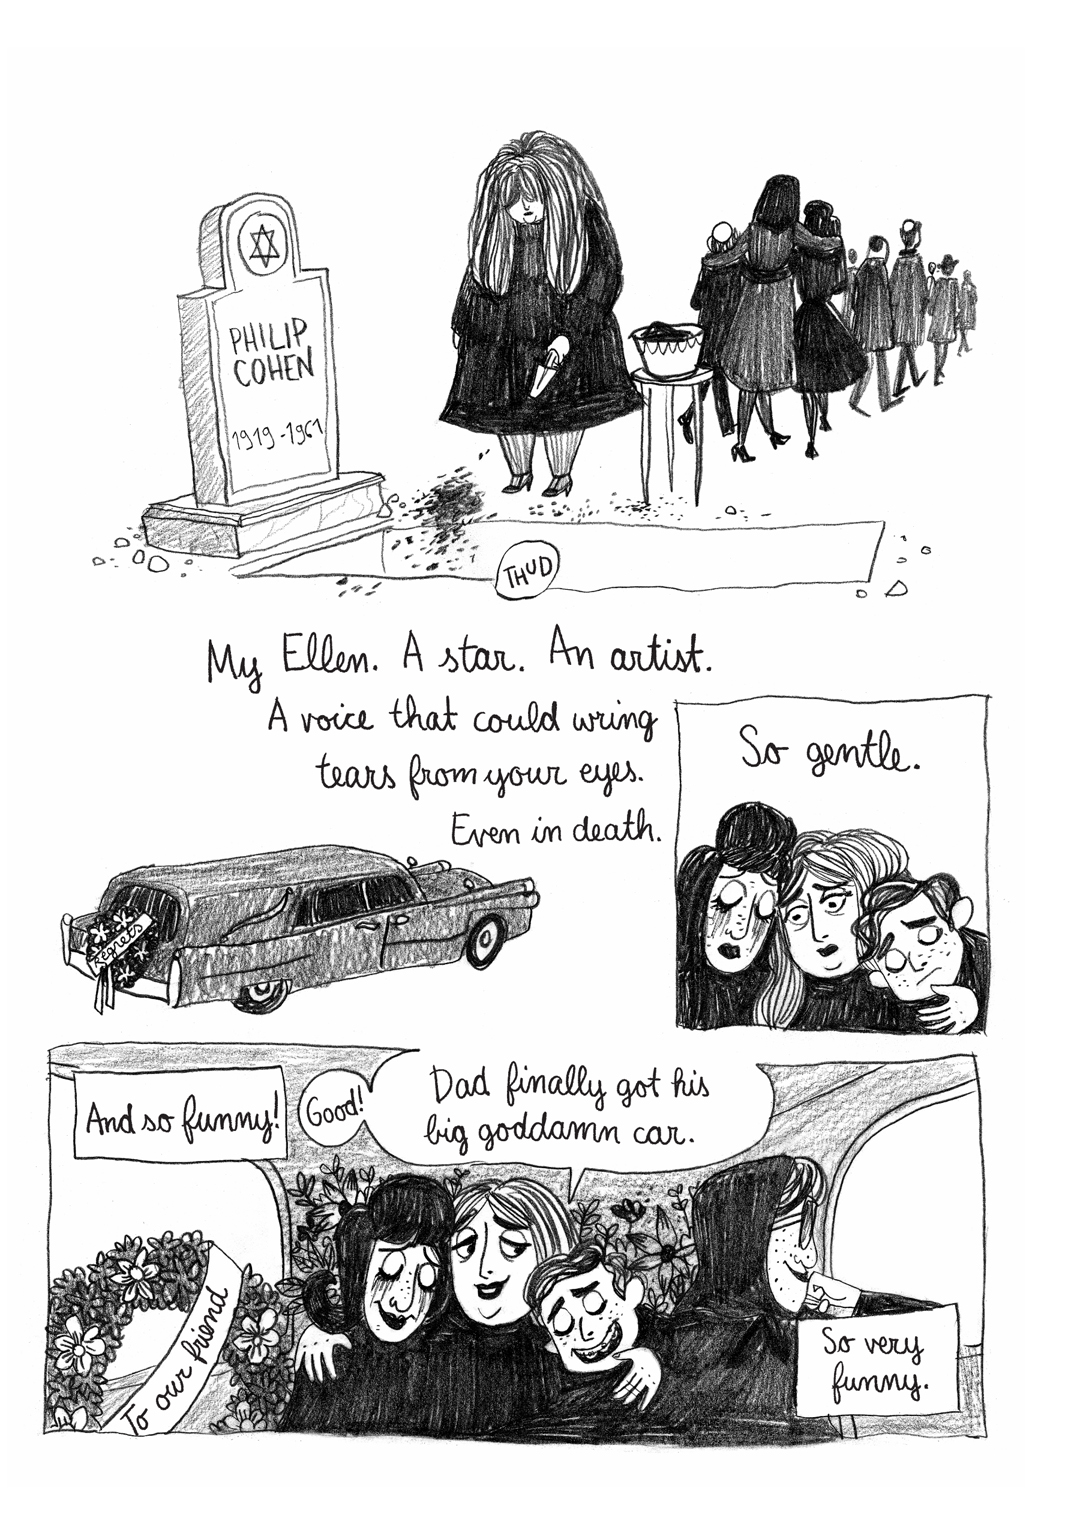 PHILIP
COHEN
1919-1961
THUD
My Ellen. A star. An artist.
A voice that could wring
tears from your eyes.
Even in death.
So gentle.
Regrets
And so funny!
Good!
Dad finally got his
big goddamn car.
To our friend
So very
funny.